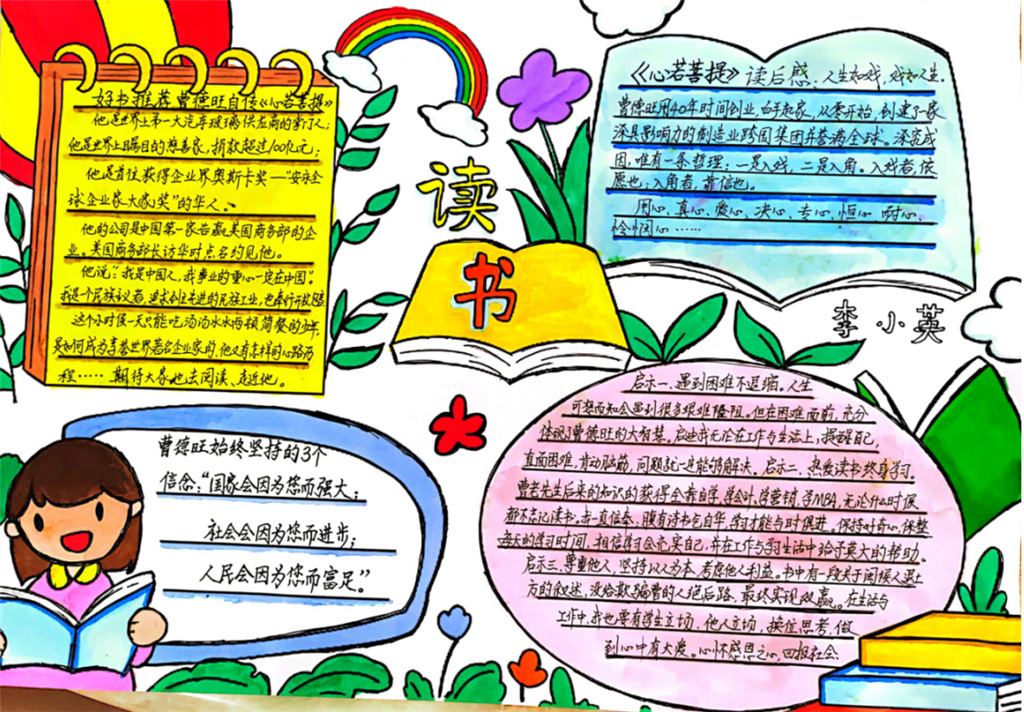 好书推荐 曹德旺自传《心若菩提》
他是世界上第一大汽车玻璃供应商的掌门人；
他是世界上瞩目的慈善家，捐款超过100亿元；
他是首位获得企业界奥斯卡奖—“安永全
球企业家大家奖”的华人。
他的公司是中国第一家告赢美国商务部的企
业。美国商务部长访华时点名约见他。
他说：“我是中国人，我事业的重心一定在中国”。
我是个民族议者，追求创先进的民族工业，也奉行开放
这个小时候一天只能吃汤汤水水两顿简餐的少年，
是如何成为享誉世界著名企业家的，他又有怎样的心路历
程…… 期待大家也去阅读、走进他。
读
书
《心若菩提》读后感、人生如戏，戏如人生。
曹德旺用40年时间创业，白手起家，从零开始，创建了一家
深具影响力的制造业跨国集团并誉满全球。深究成
因，唯有一条哲理：一是入戏，二是入角。入戏者，依
愿也；入角者，靠信也。
用心、真心、爱心、决心、专心、恒心 耐心、
怜悯心……
李小英
曹德旺始终坚持的3个
信念：“国家会因为您而强大；
社会会因为您而进步；
人民会因为您而富足。”
启示一、遇到困难不退缩。人生
可想而知会遇到很多艰难险阻。但在困难面前，充分
体现了曹德旺的大智慧。启迪我无论在工作与生活上，提醒自己，
直面困难，肯动脑筋，问题就一定能够解决。启示二、热爱读书终身学习。
曹老先生后来的知识的获得全靠自学，学会计、学营销、学MBA，无论什么时候
都不忘记读书，击一直信奉，腹有诗书气自华，学习才能与时俱进。保持好奇心，保整
每天的学习时间，相信学习会充实自己，并在工作与学习生活中给予莫大的帮助。
启示三、尊重他人，坚持以人为本，考虑他人利益。书中有一段关于问候人退土
方的叙述，没给欺骗曹的人绝后路，最终实现双赢。在生活与
工作中，我也要有学生立场，他人立场，换位思考，做
到心中有大爱。心怀感恩之心，回报社会。